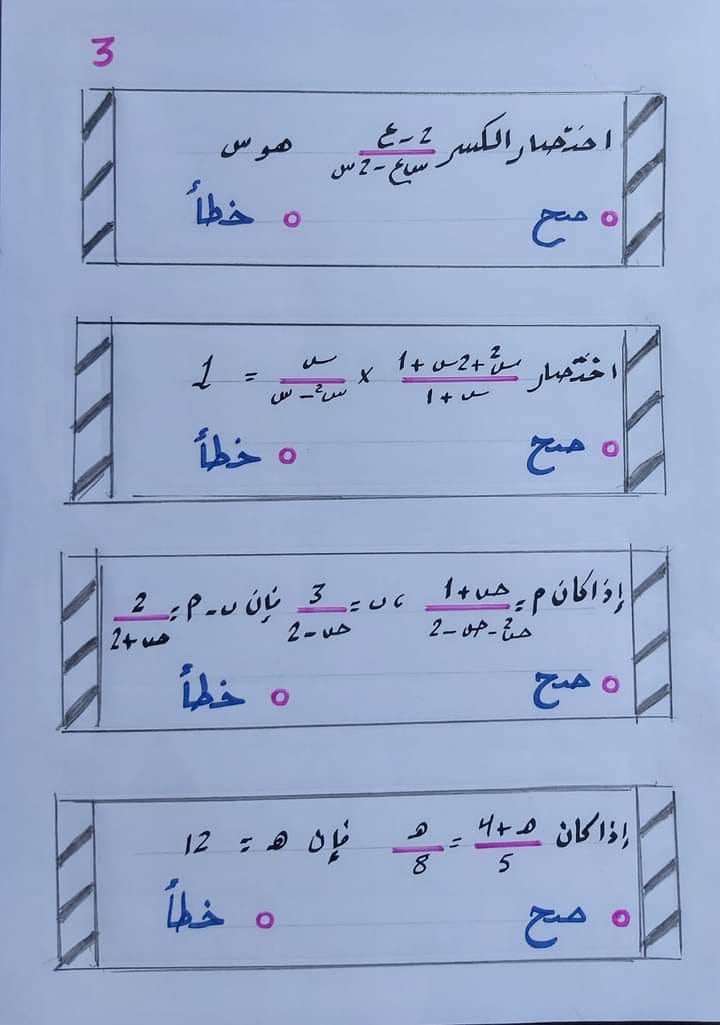 3
اختصار الكسر (2 - ع)/(س ع - 2 س) هو س
صح خطأ
اختصار (س² + 2س + 1)/(س + 1) × س/(س² - س) = 1
صح خطأ
إذا كان م = (ص + 1)/(ص² - ص - 2) ، ن = 3/(ص - 2) فإن ن - م = 2/(ص + 2)
صح خطأ
إذا كان (ه + 4)/5 = ه/8 فإن ه = 12
صح خطأ